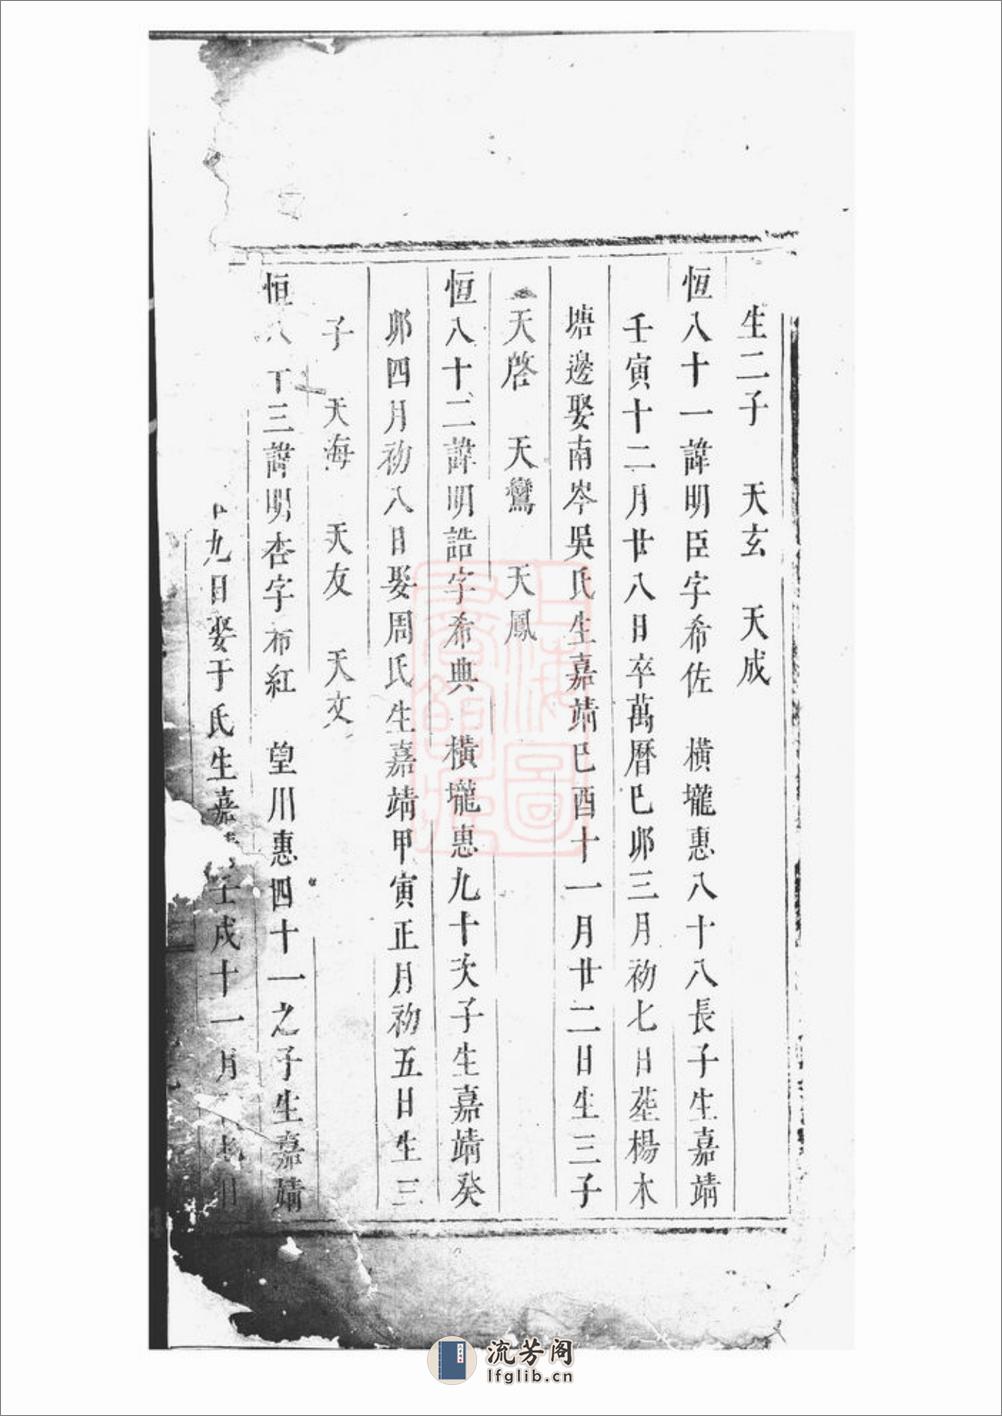 生二子 天玄 天成
恒八十一諱明臣字希佐 橫壠惠八十八長子生嘉靖
壬寅十二月廿八日卒萬曆巳卯三月初七日塟楊木
塘邊娶南岑吳氏生嘉靖巳酉十一月廿二日生三子
天啓 天鸞 天鳳
恒八十二諱明誥字希典 橫壠惠九十次子生嘉靖癸
卯四月初八日娶周氏生嘉靖甲寅正月初五日生三
子 天海 天友 天文
恒八十三諱明杏字希紅 望川惠四十一之子生嘉靖
九日娶于氏生嘉 壬戌十一月
上海圖書館藏
流芳阁
lfglib.cn